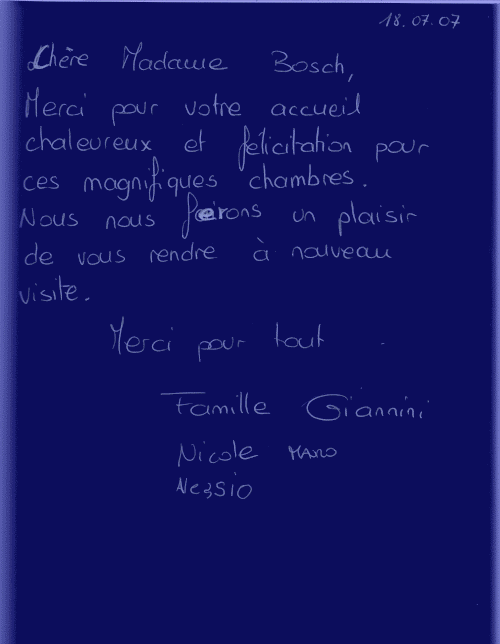 18.07.07
Chère Madame Bosch,
Merci pour votre accueil
chaleureux et félicitation pour
ces magnifiques chambres.
Nous nous ferons un plaisir
de vous rendre à nouveau
visite.
Merci pour tout
Famille Giannini
Nicole